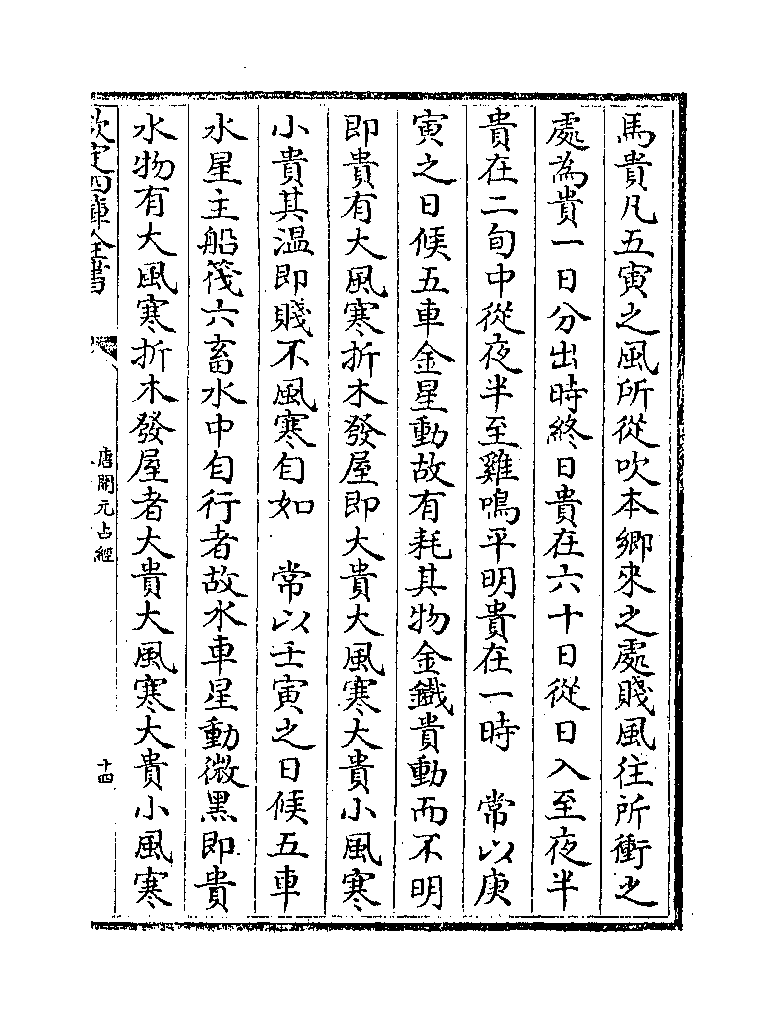 馬貴凡五寅之風所從吹本鄉來之處賤風往所衝之
處為貴一日分出時終日貴在六十日從日入至夜半
貴在二旬中從夜半至雞鳴平明貴在一時　常以庚
寅之日候五車金星動故有耗其物金鐵貴動而不明
即貴有大風寒折木發屋即大貴大風寒大貴小風寒
小貴其溫即賤不風寒自如　常以壬寅之日候五車
水星主船筏六畜水中自行者故水車星動微黑即貴
水物有大風寒折木發屋者大貴大風寒大貴小風寒
欽定四庫全書
唐開元占經
十四